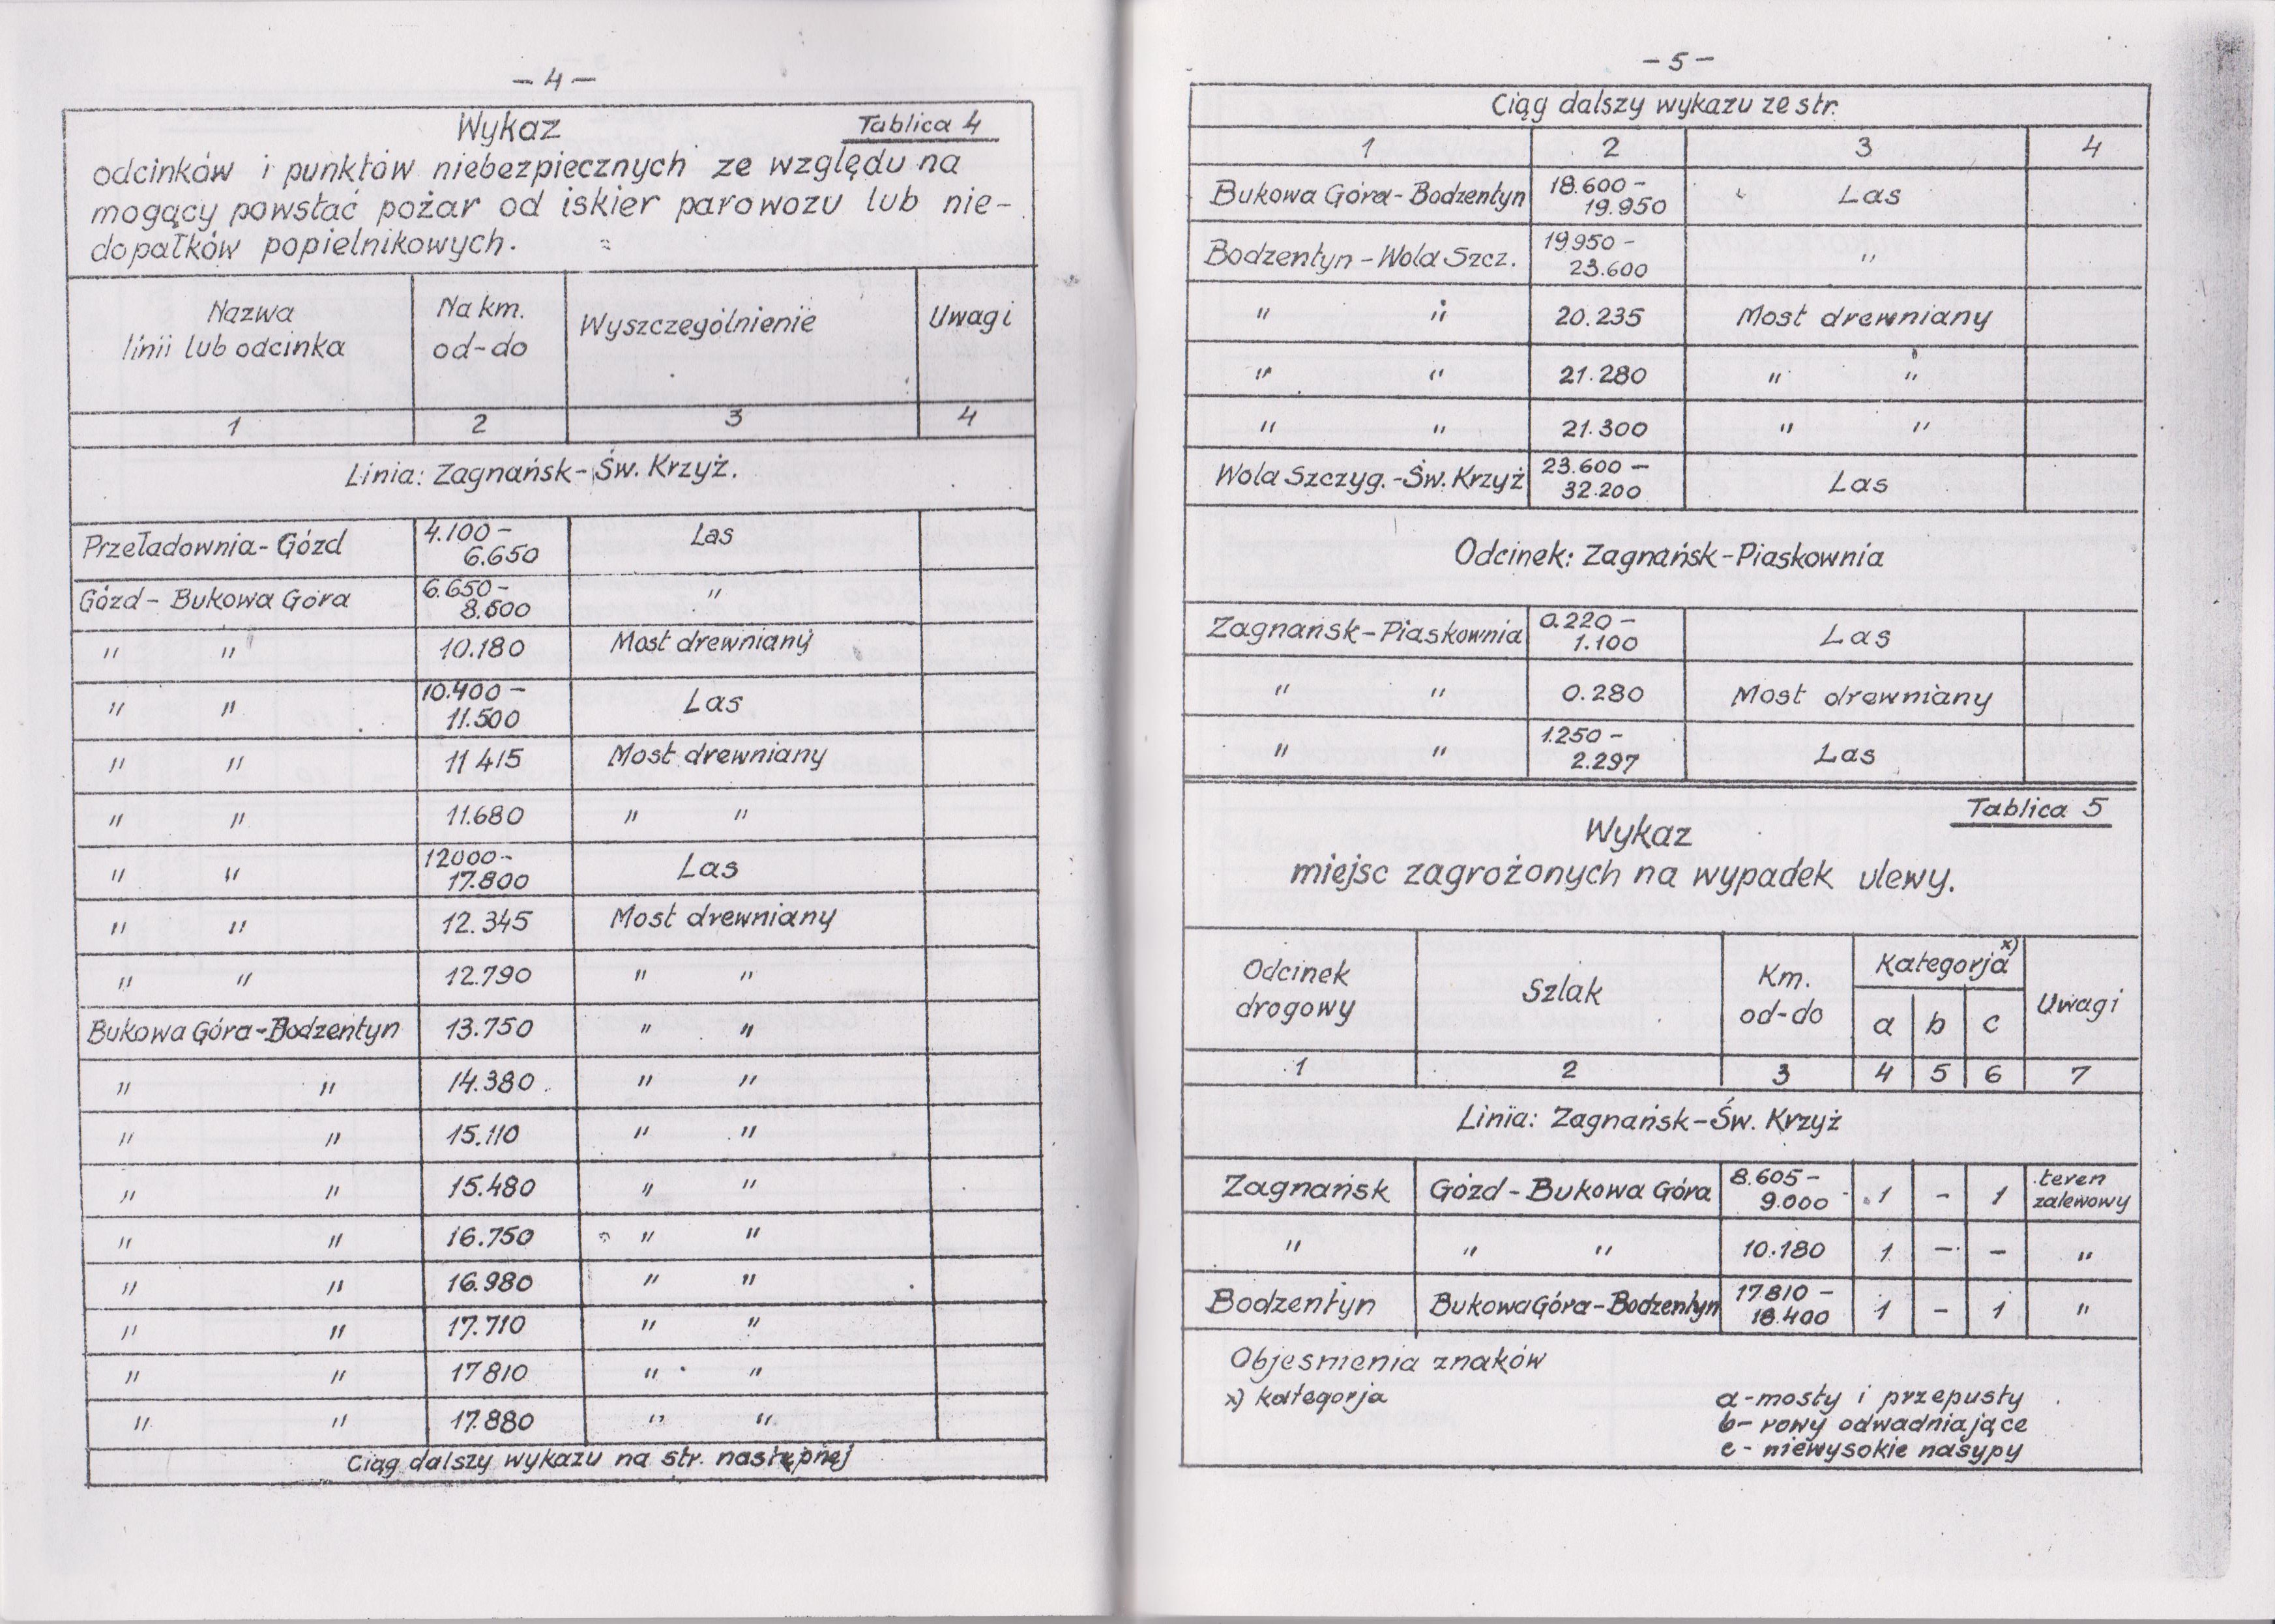 – 4 –
Wykaz Tablica 4
odcinków i punktów niebezpiecznych ze względu na
mogący powstać pożar od iskier parowozu lub nie-
dopałków popielnikowych.
Nazwa
linii lub odcinka
Na km.
od-do
Wyszczególnienie
Uwagi
1 2 3 4
Linia: Zagnańsk-Św. Krzyż.
Przeładownia-Gózd 4.100- Las
6.650
Gózd - Bukowa Góra 6.650- "
8.600
" " 10.180 Most drewniany
" " 10.400- Las
11.500
" " 11 415 Most drewniany
" " 11.680 " "
" " 12000- Las
17.800
" " 12.345 Most drewniany
" " 12.790 " "
Bukowa Góra-Bodzentyn 13.750 " "
" " 14.380 " "
" " 15.110 " "
" " 15.480 " "
" " 16.750 " "
" " 16.980 " "
" " 17.710 " "
" " 17810 " "
" " 17.880 " "
Ciąg dalszy wykazu na str. następnej
– 5 –
Ciąg dalszy wykazu ze str.
1 2 3 4
Bukowa Góra-Bodzentyn 18.600- Las
19.950
Bodzentyn-Wola Szcz. 19950- "
23.600
" " 20.235 Most drewniany
" " 21.280 " "
" " 21.300 " "
Wola Szczyg.-Św. Krzyż 23.600- Las
32.200
Odcinek: Zagnańsk-Piaskownia
Zagnańsk-Piaskownia 0.220- Las
1.100
" " 0.280 Most drewniany
" " 1.250- Las
2.297
Tablica 5
Wykaz
miejsc zagrożonych na wypadek ulewy.
Odcinek
drogowy
Szlak
Km.
od-do
Kategorja x)
a b c
Uwagi
1 2 3 4 5 6 7
Linia: Zagnańsk-Św. Krzyż
Zagnańsk Gózd - Bukowa Góra 8.605- 1 - 1 teren
9.000 zalewowy
" " " 10.180 1 - - "
Bodzentyn Bukowa Góra-Bodzentyn 17810- 1 - 1 "
18.400
Objesnienia znaków
x) kategorja a-mosty i przepusty
b- rowy odwadniające
c- niewysokie nasypy